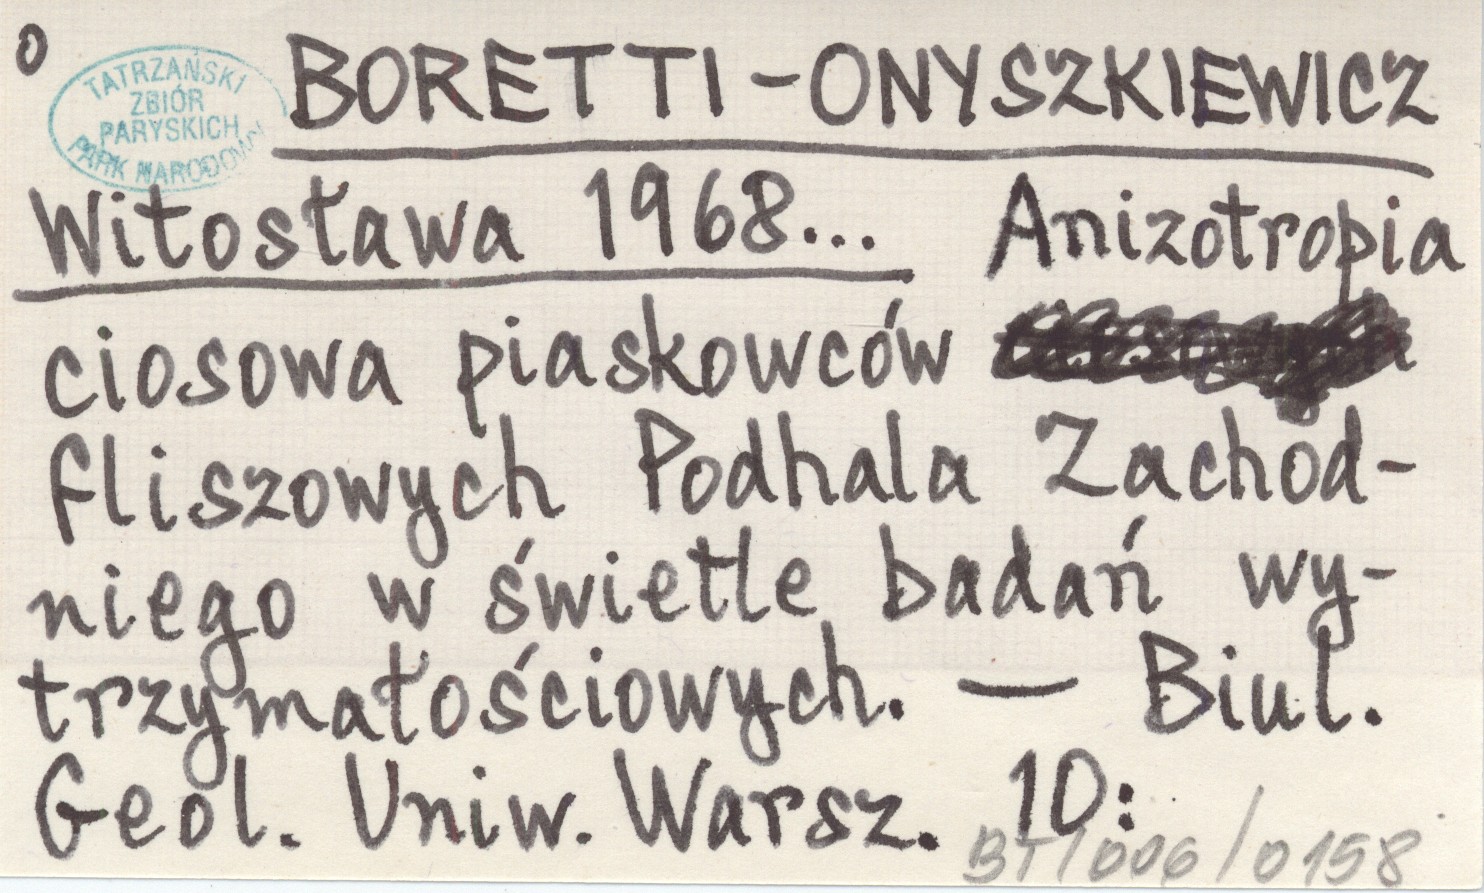 O
TATRZAŃSKI
ZBIÓR
PARYSKICH
PARK NARODOWY
BORETTI-ONYSZKIEWICZ
Witosława 1968... Anizotropia
ciosowa piaskowców
fliszowych Podhala Zachod-
niego w świetle badań wy-
trzymałościowych. — Biul.
Geol. Uniw. Warsz. 10:
BT/006/0158